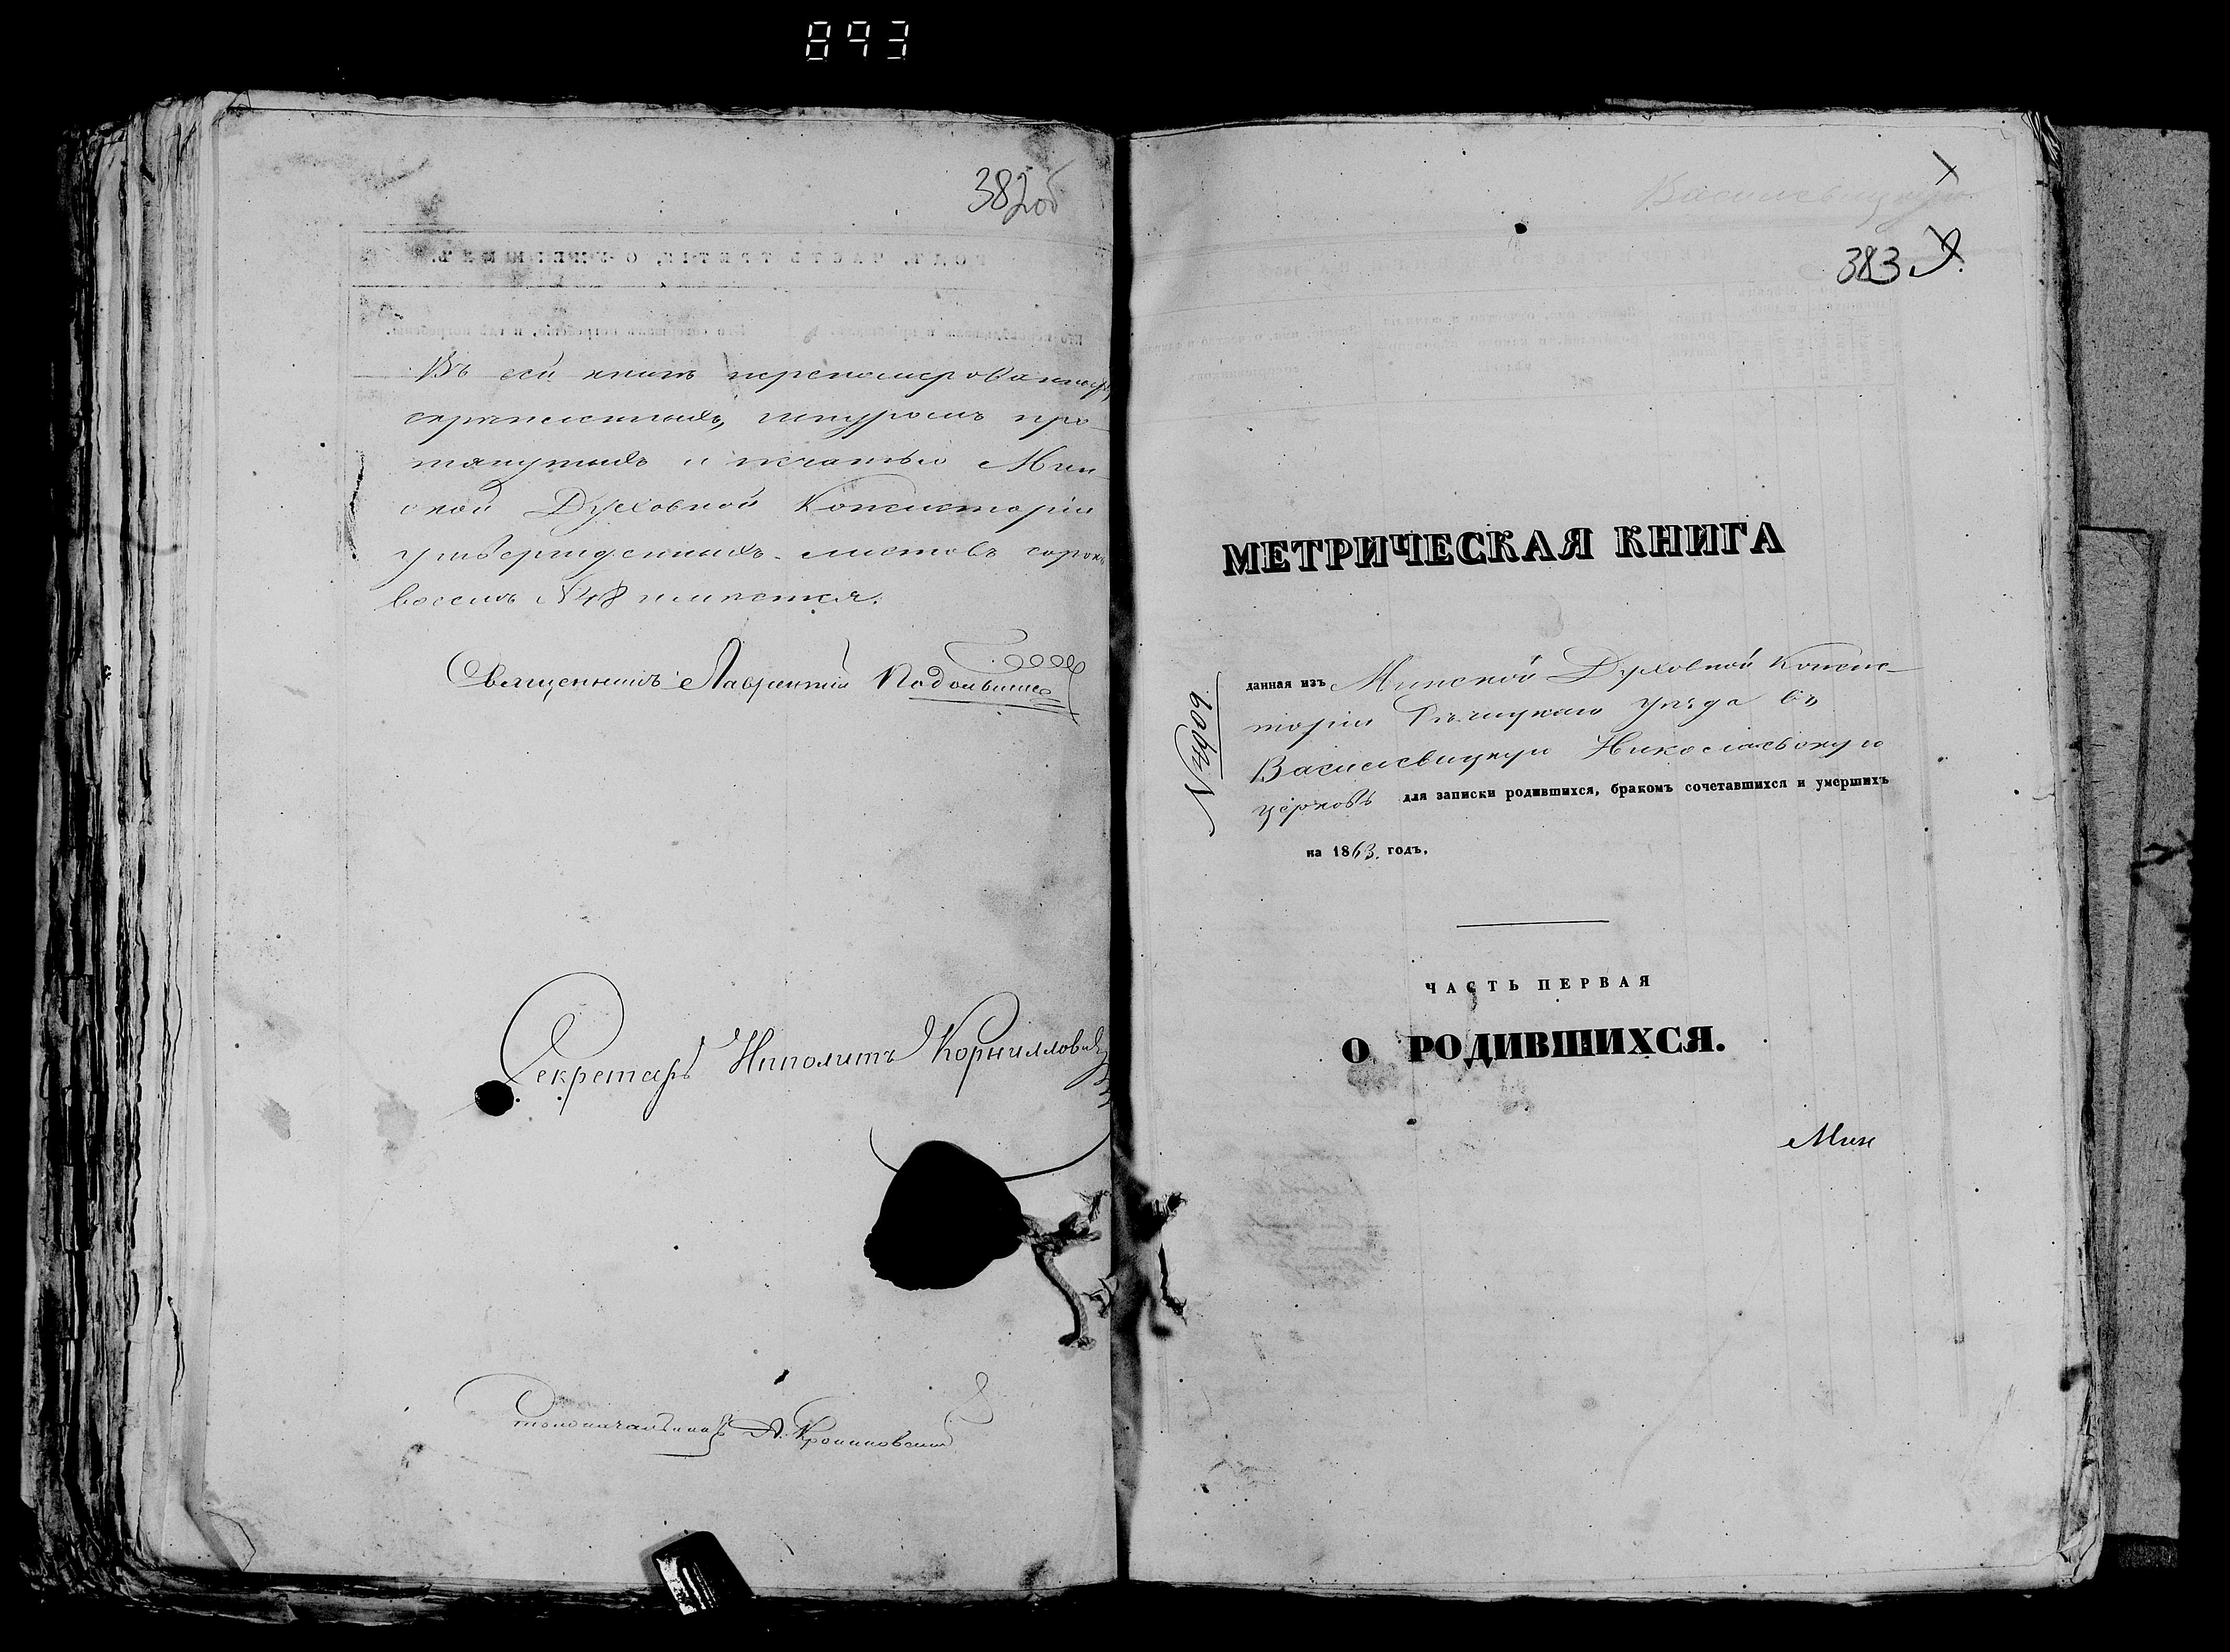 893
382об
Въ сей книгѣ перенумерованныхъ,
скрѣпленныхъ, шнуромъ про-
тянутыхъ и печатью Мин-
ской Духовной Консисторіи
утвержденныхъ листовъ сорокъ
восемь №48 имѣется.
Священникъ Лаврентій
Секретарь Ипполитъ Корнилловичъ
Столоначальникъ А.
383
МЕТРИЧЕСКАЯ КНИГА
№4909
данная изъ Минской Духовной Консис-
торіи Рѣчицкаго уѣзда въ
Василевицкую Николаевскую
церковь для записки родившихся, бракомъ сочетавшихся и умершихъ
на 1863. годъ.
ЧАСТЬ ПЕРВАЯ
О РОДИВШИХСЯ.
Мин